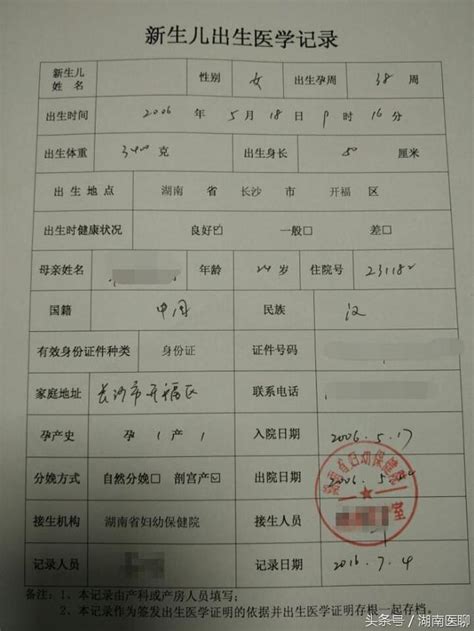 新生儿出生医学记录
新生儿姓名 性别 女 出生孕周 38 周
出生时间 2006 年 5 月 18 日 9 时 16 分
出生体重 3400 克 出生身长 50 厘米
出生地点 湖南 省 长沙 市 开福 区
出生时健康状况 良好☑ 一般□ 差□
母亲姓名 年龄 24 岁 住院号 231182
国籍 中国 民族 汉
有效身份证件种类 身份证 证件号码
家庭地址 长沙市开福区 联系电话
孕产史 孕 1 产 1 入院日期 2006.5.17
分娩方式 自然分娩□ 剖宫产☑ 出院日期 2006.5.
接生机构 湖南省妇幼保健院 接生人员
记录人员 记录日期 2016.7.4
省妇幼保健院
室
备注：1、本记录由产科或产房人员填写；
2、本记录作为签发出生医学证明的依据并出生医学证明存根一起存档。
头条号 / 湖南医聊